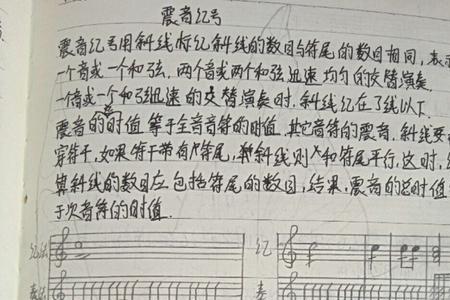 震音记号
震音记号用斜线标记斜线的数目与符尾的数目相同，表示
一个音或一个和弦，两个音或两个和弦迅速均匀的交替演奏
一个音或一个和弦迅速的交替演奏时，斜线记在了线以下
震音的总时值等于全音音符的时值，其它音符的震音，斜线要
穿符干，如果符干带有尾，斜线则和符尾平行，这时，
算斜线的数目应包括符尾的数目，结果，震音的总时值
于次音符的时值
记法
记
奏法
奏